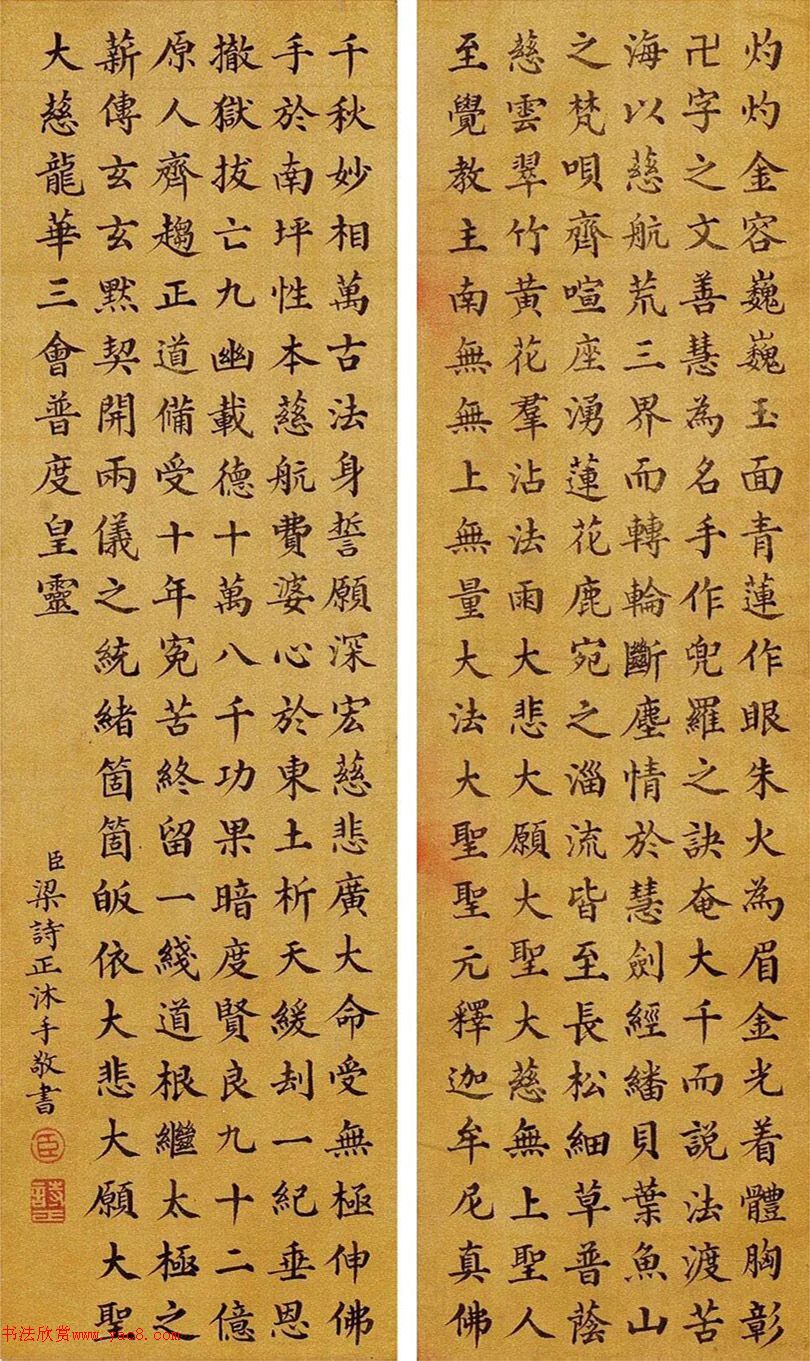 灼灼金容巍巍玉面青蓮作眼朱火為眉金光着體胸彰
卍字之文善慧為名手作兜羅之訣奄大千而説法渡苦
海以慈航荒三界而轉輪斷塵情於慧劍經繙貝葉魚山
之梵唄齊喧座湧蓮花鹿宛之淄流皆至長松細草普蔭
慈雲翠竹黄花羣沾法雨大悲大願大聖大慈無上聖人
至覺教主南無無上無量大法大聖聖元釋迦牟尼真佛
千秋妙相萬古法身誓願深宏慈悲廣大命受無極伸佛
手於南坪性本慈航費婆心於東土析天緩刦一紀垂恩
撤獄拔亡九幽載德十萬八千功果暗度賢良九十二億
原人齊趨正道備受十年寃苦終留一綫道根繼太極之
薪傳玄玄黙契開兩儀之統緒箇箇皈依大悲大願大聖
大慈龍華三會普度皇靈
臣梁詩正沐手敬書
臣
书法欣赏www.yac8.com